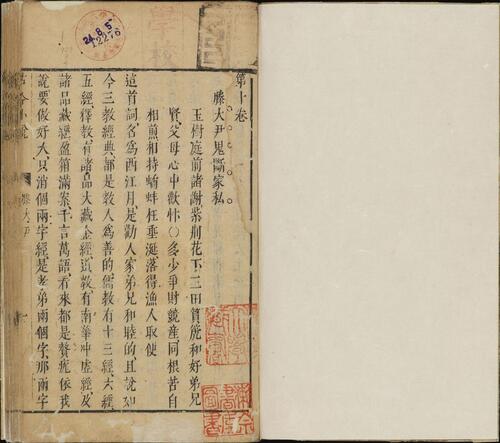 第十卷
滕大尹鬼斷家私
玉樹庭前諸謝紫荊花下三田塤箎和好弟兄
賢父母心中歡忭○多少爭財競産同根苦自
相煎相持鷸蚌枉垂涎落得漁人取便
這首詞名爲西江月是勸人家弟兄和睦的且說如
今三教經典都是教人爲善的儒教有十三經六經
五經釋教有諸品大藏金經道教有南華冲虛經及
諸品藏經盈箱滿案千言萬語看來都是贅疣依我
說要做好人只消個兩字經是孝弟兩個字那兩字
古今小說
滕大尹
一
24.8.5
12276